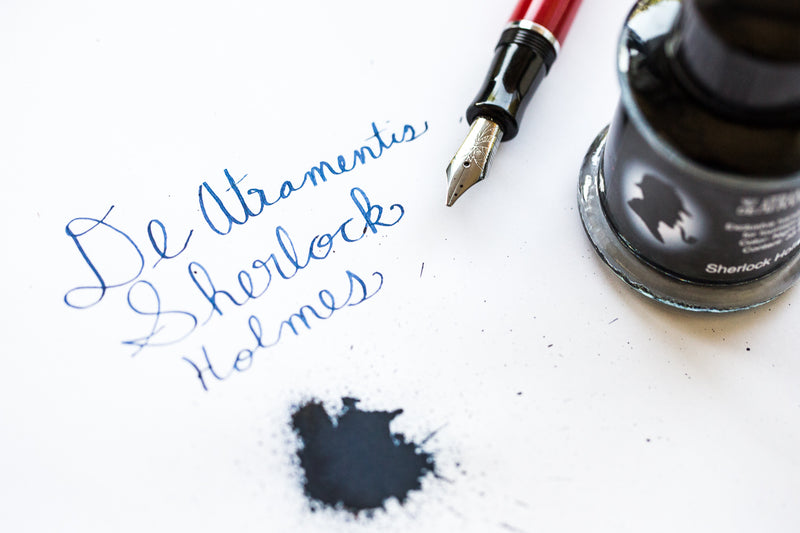 De Atramentis
Sherlock
Holmes
Sherlock Hol